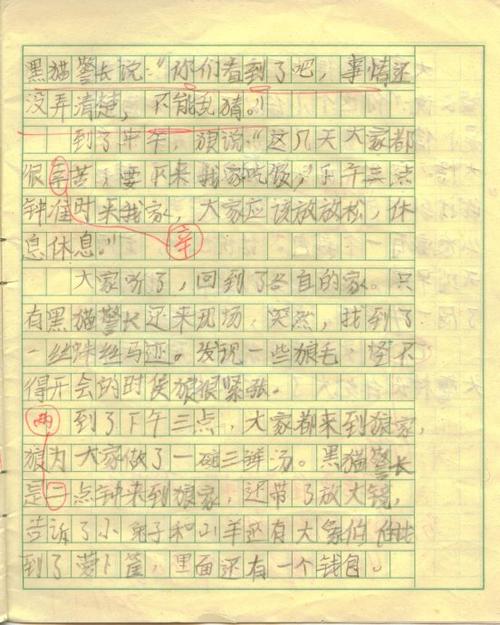 黑猫警长说:“你们看到了吧,事情还
没弄清楚,不能乱猜。”
到了中午,狼说“这几天大家都
很辛苦,要下来我家吃饭,”下午三点
钟准时来我家,大家应该放放松,休
息休息。”
辛
大家听了,回到了各自的家。只
有黑猫警长还来现场,突然,找到了
一丝蛛丝马迹。发现一些狼毛,怪不
得开会的时候狼很紧张。
两
到了下午三点,大家都来到狼家,
狼为大家做了一碗三鲜汤。黑猫警长
是二点钟来到狼家,还带了放大镜,
告诉了小兔子和小羊还有大象伯伯
到了萝卜筐,里面还有一个钱包。